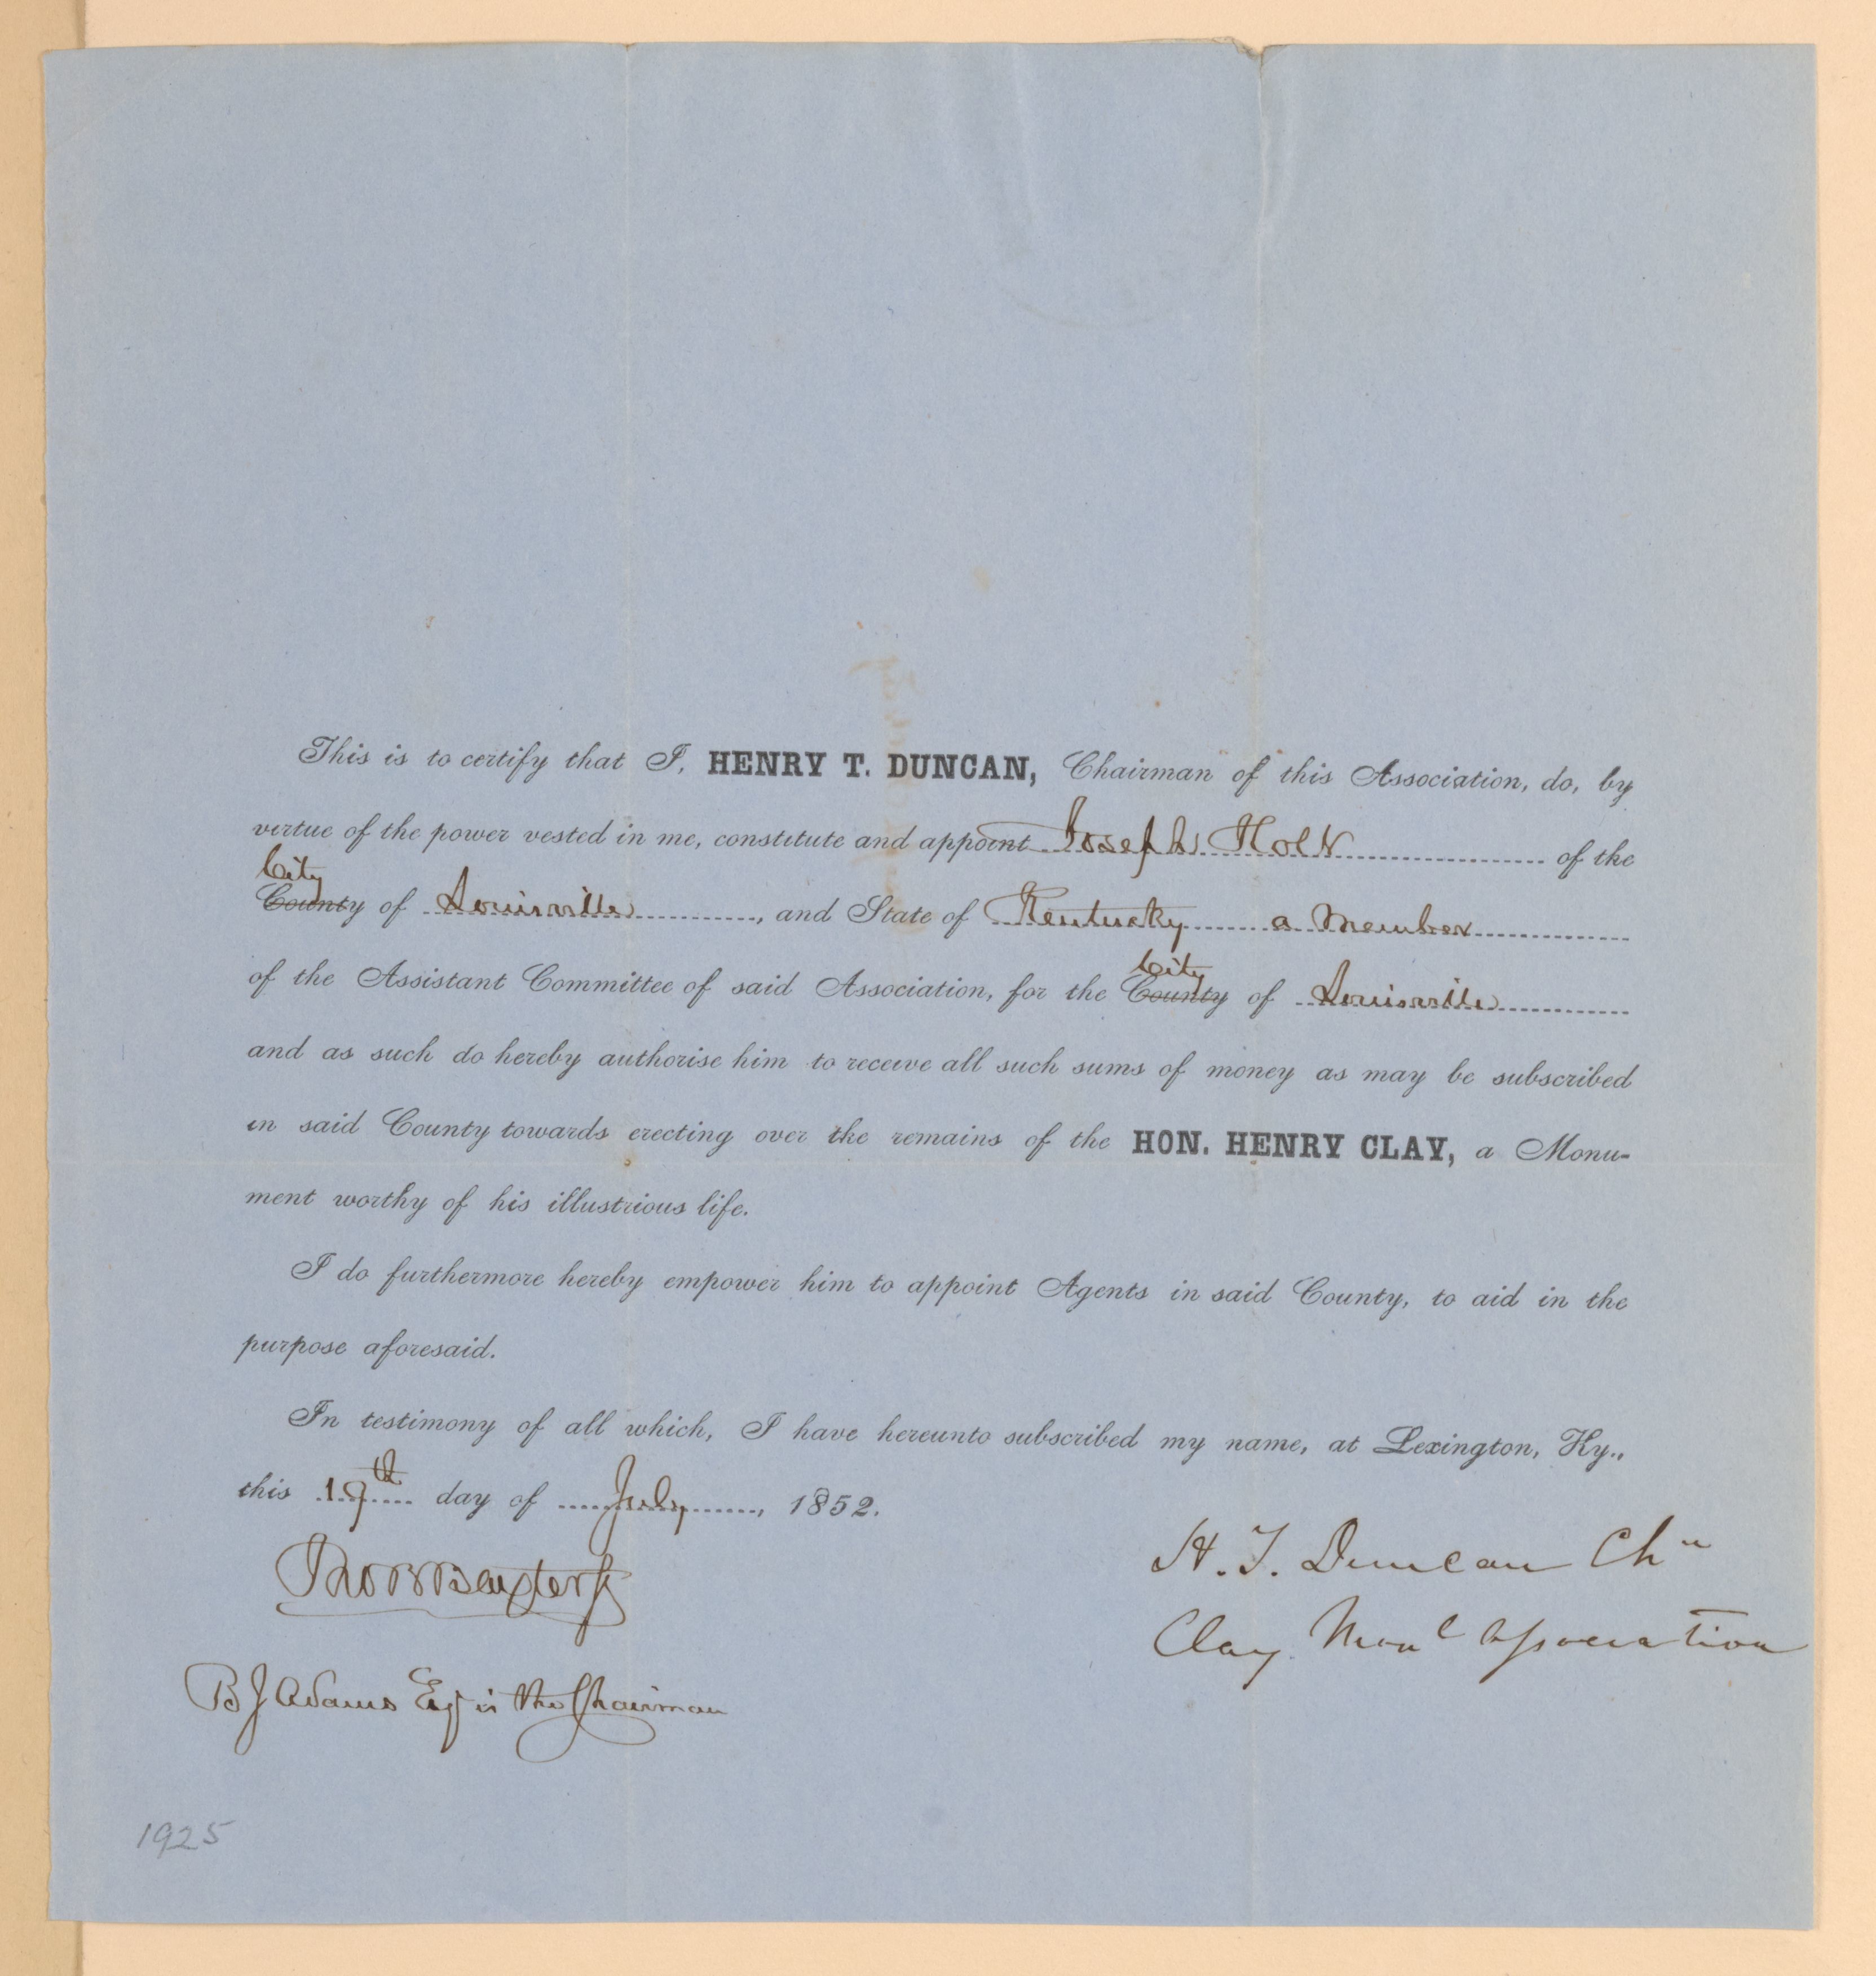 This is to certify that I, HENRY T. DUNCAN, Chairman of this Association, do, by
virtue of the power vested in me, constitute and appoint Joseph Holt of the
City
County of Louisville, and State of Kentucky a member
City
of the Assistant Committee of said Association, for the County of Louisville
and as such do hereby authorise him to receive all such sums of money as may be subscribed
in said County towards erecting over the remains of the HON. HENRY CLAY, a Monu-
ment worthy of his illustrious life.
I do furthermore hereby empower him to appoint Agents in said County, to aid in the
purpose aforesaid.
In testimony of all which, I have hereunto subscribed my name, at Lexington, Ky.,
this 19th day of July, 1852.
H. T. Duncan Chn
Clay Monl Association
B J Adams Esq is the Chairman
1925